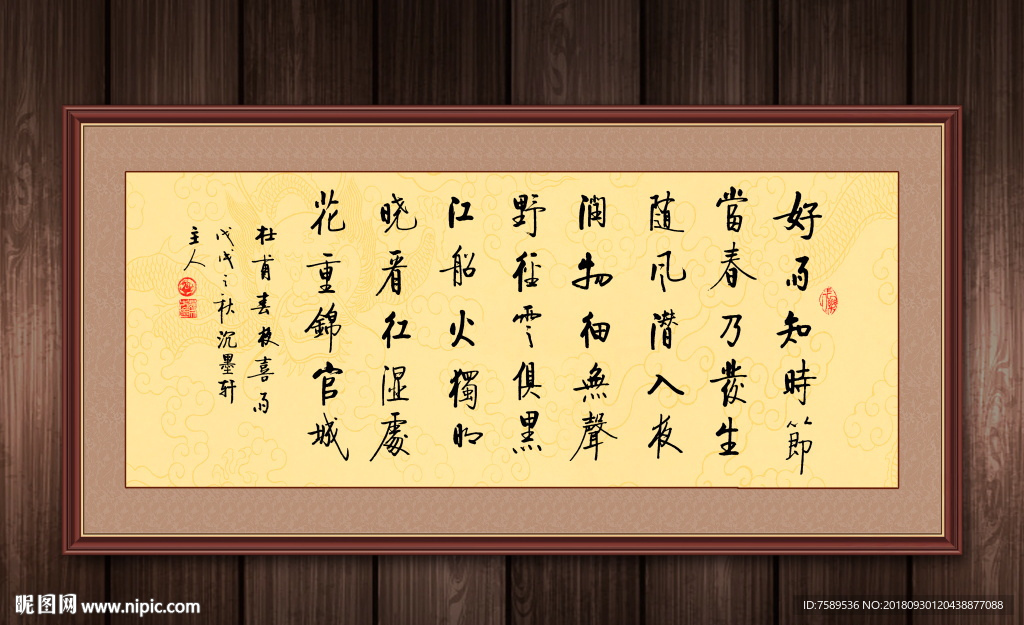 好雨知時節
當春乃發生
随风潜入夜
润物细無聲
野径雲俱黑
江船火獨明
晓看红湿處
花重錦官城
杜甫春夜喜雨
戊戌之秋沉墨轩
主人
昵图网 www.nipic.com
ID:7589536 NO:20180930120438877088